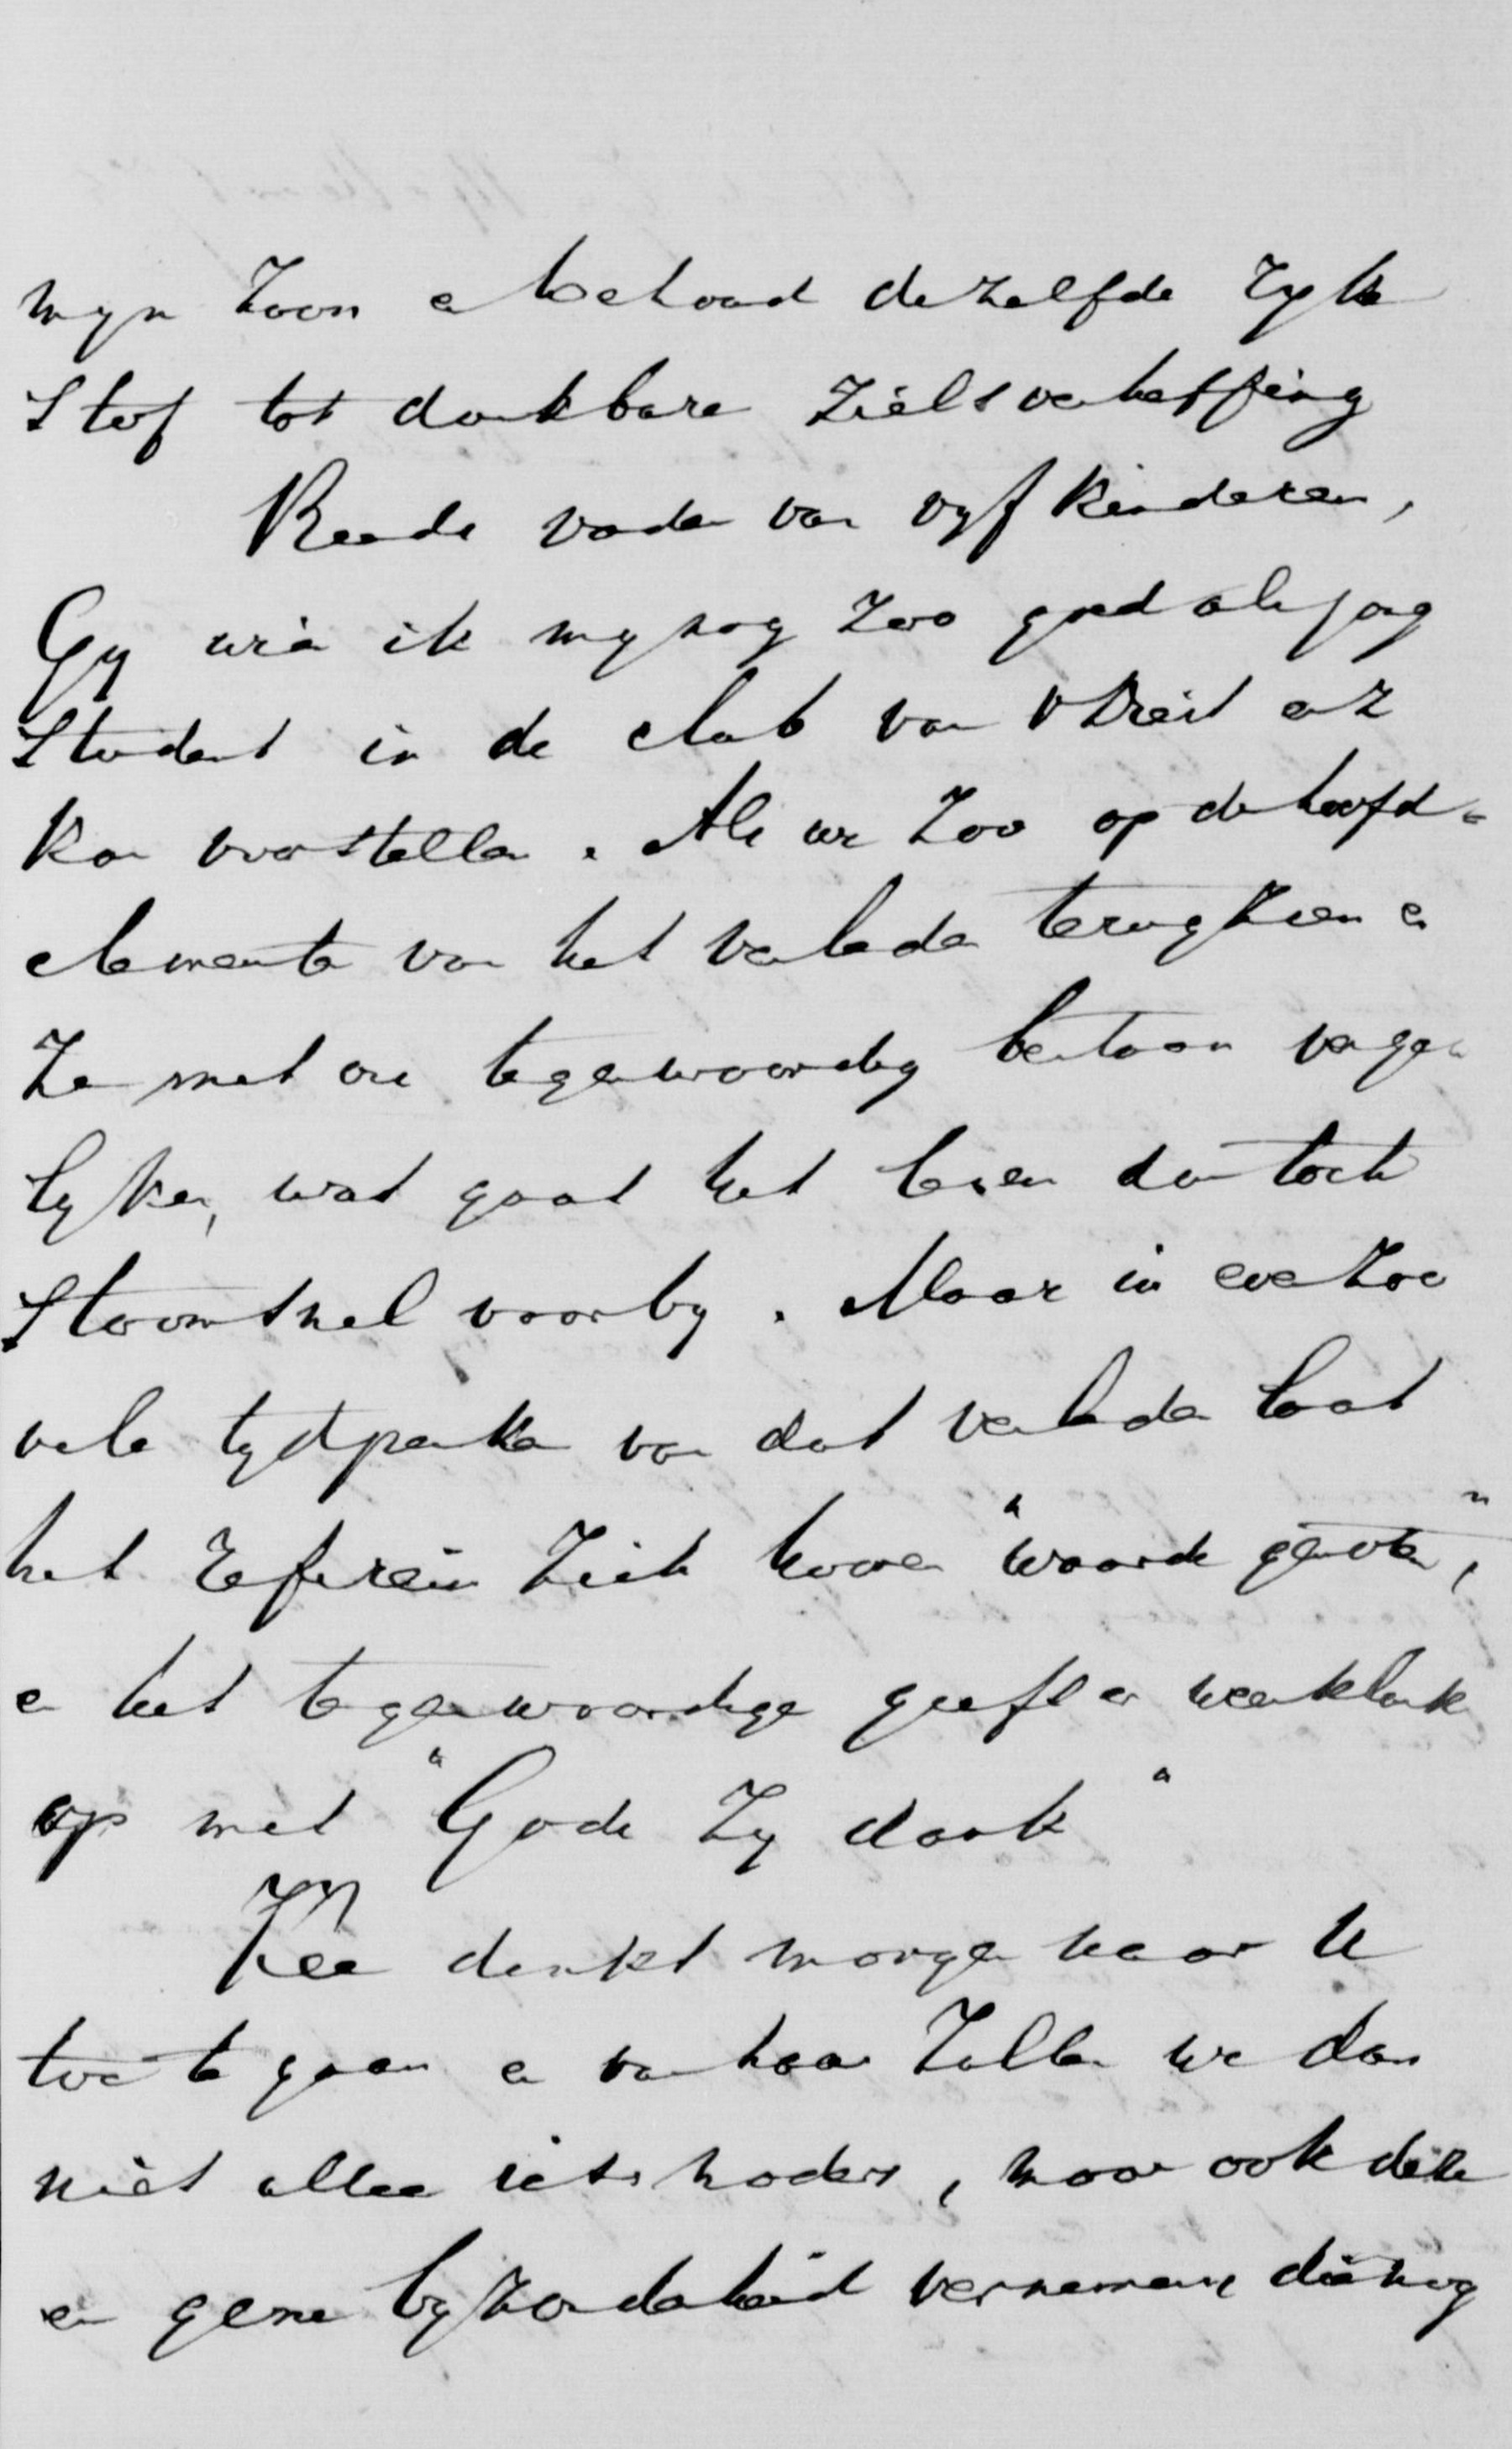 mijn zoon en behoud dezelfde rijke
stof tot dankbare zielsverheffing
Reeds vader van vijf kinderen,
Gij wien ik mij nog zoo goed als jong
student in de club van enz
kan voorstellen. Als we zoo op de hoofd-
elementen van het verleden terugzien en
ze met ons tegenwoordig bestaan verge-
lijken, wat gaat het leven dan toch
stoomsnel voorbij. Maar in even zoo
vele tijdperken van dat verleden laat
het refrein zich hooren "waarde genoten",
en het tegenwoordige geeft er weerklank
op met "Gode zij dank"
Kee denkt morgen naar U
toe te gaan en van haar zullen we dan
niet alleen iets naders, maar ook deze
en gene bijzonderheid vernemen die nog